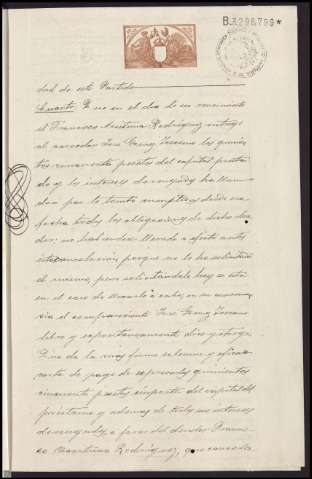 B.3298,799*
dad de este Partido
Cuarto. Que en el dia de su vencimiento
el Francisco Rodriguez entregó
al acreedor José las quinien-
tas cincuenta pesetas del capital presta-
do y los intereses devengados hallan-
dose por lo tanto cumplidas desde esa
fecha todas las obligaciones de dicho deu-
dor; no habiendose llevado a efecto antes
esta cancelación porque no lo ha solicitado
el mismo, pero solicitandolo hoy está
en el caso de llevarlo a cabo, en su consecuen-
cia el compareciente José
libre y espontaneamente dice y otorga
Que de la mas formal solemne y eficaz
carta de pago de expresadas quinientas
cincuenta pesetas importe del capital del
préstamo y ademas de todos sus intereses
devengados, a favor del deudor Francis-
co Rodriguez, que cancela